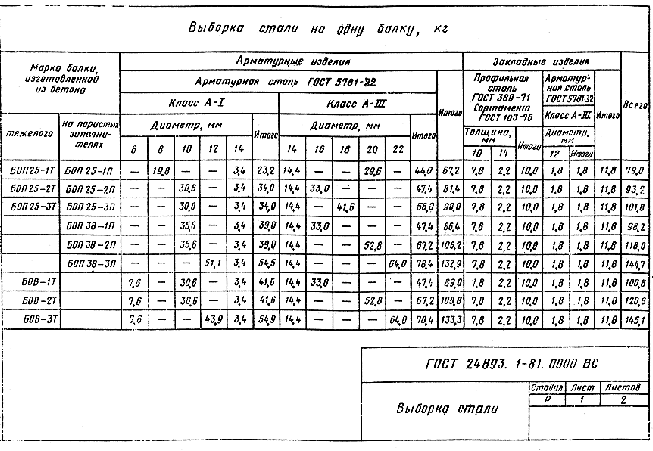 Выборка стали на одну балку, кг
Марка балки, изготовленной из бетона
Арматурные изделия
Закладные изделия
Всего
Арматурная сталь ГОСТ 5781-82
Итого
Профильная сталь ГОСТ 380-71 Сортамент ГОСТ 103-76
Арматурная сталь ГОСТ 5781-82
Итого
Класс А-I
Класс А-III
Класс А-III
тяжелого
на пористых заполнителях
Диаметр, мм
Итого
Диаметр, мм
Итого
Толщина, мм
Итого
Диаметр, мм
6 8 10 12 14
14 16 18 20 22
10 14
12 Итого
БОП25-1Т БОП 25-1П — 19,8 — — 3,4 23,2 14,4 — — 29,6 — 44,0 67,2 7,8 2,2 10,0 1,8 1,8 11,8 79,0
БОП 25-2Т БОП 25-2П — — 30,6 — 3,4 34,0 14,4 33,0 — — — 47,4 81,4 7,8 2,2 10,0 1,8 1,8 11,8 93,2
БОП 25-3Т БОП 25-3П — — — 3,4 34,0 14,4 — 41,6 — — 7,8 2,2 10,0 1,8 1,8 11,8
БОП 38-1П — — — 3,4 39,0 14,4 33,0 — — — 47,4 86,4 7,8 2,2 10,0 1,8 1,8 11,8 98,2
БОП 38-2П — — 35,6 — 3,4 39,0 14,4 — — 52,8 — 67,2 106,2 7,8 2,2 10,0 1,8 1,8 11,8 118,0
БОП 38-3П — — — 51,1 3,4 54,5 14,4 — — — 64,0 78,4 132,9 7,8 2,2 10,0 1,8 1,8 11,8 144,7
БОВ-1Т 7,6 — 30,6 — 3,4 41,6 14,4 33,0 — — — 47,4 89,0 7,8 2,2 10,0 1,8 1,8 11,8 100,8
БОВ-2Т 7,6 — 30,6 — 3,4 41,6 14,4 — — 52,8 — 67,2 108,8 7,8 2,2 10,0 1,8 1,8 11,8 120,6
БОВ-3Т 7,6 — — 43,9 3,4 54,9 14,4 — — — 64,0 78,4 133,3 7,8 2,2 10,0 1,8 1,8 11,8 145,1
ГОСТ 24893.1-81.0000 ВС
Выборка стали
Стадия Лист Листов
Р 1 2